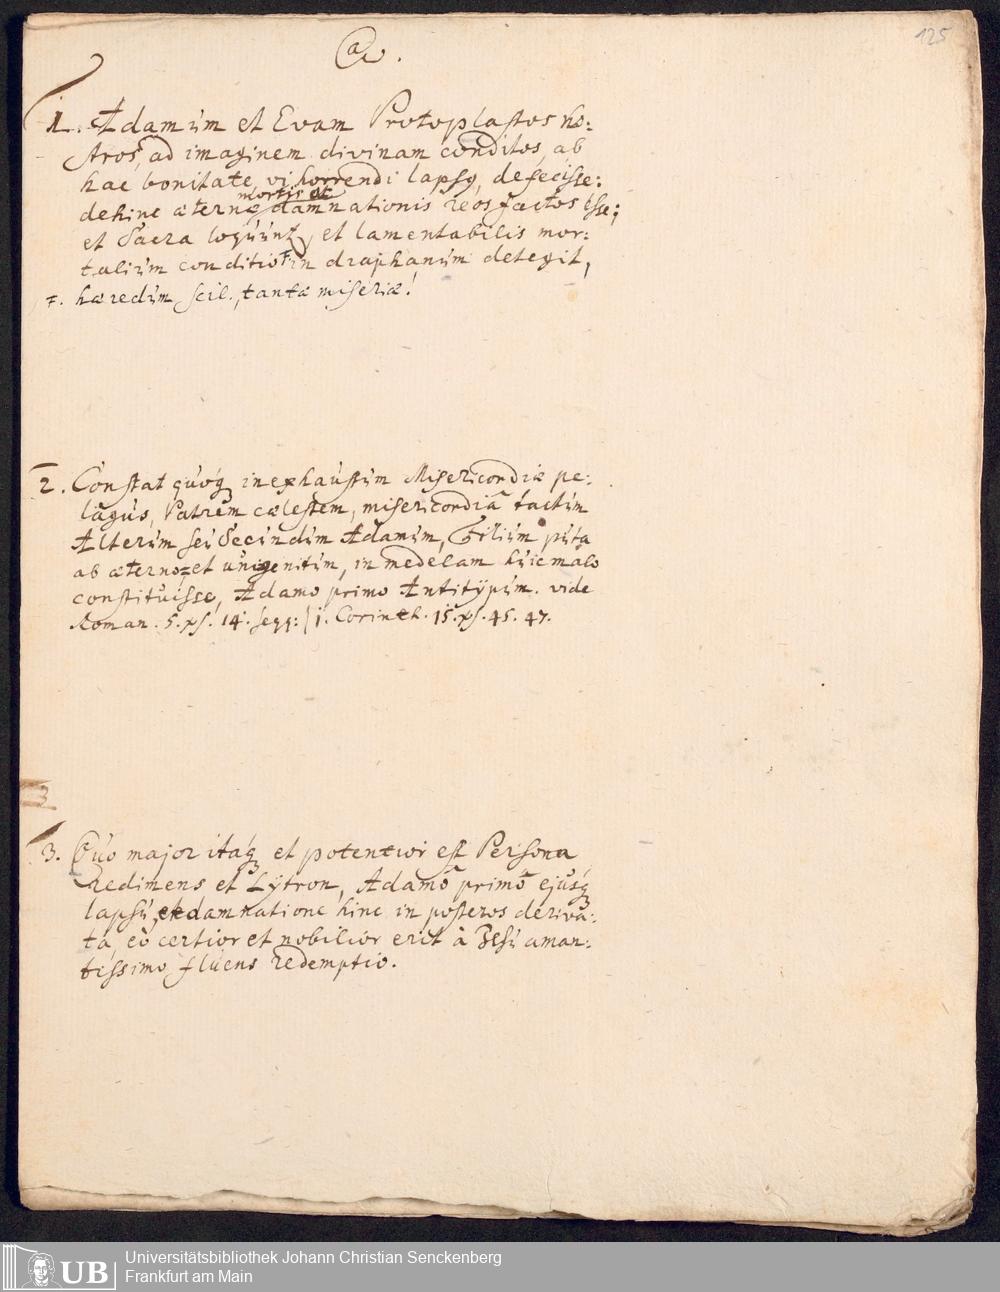 125
1. Adamum et Evam Protoplastos no:
stros, ad imaginem divinam conditos, ab
hac bonitate, vi horrendi lapsq, defecisse:
dehinc æternæ mortis et damnationis reos factos esse;
et Sacra loquunt, et lamentabilis mor:
talium conditio F in diaphanum detegit,
F. hæredum scil., tantæ miseriæ!
2. Constat quóq inexhaustum Misericordiæ pe:
lagus, Patrem cælestem, misericordiâ tactum
Alterum seu Secundum Adamum, Filium puta
ab æterno et unigenitum, in medelam huic malo
constituisse, Adamo primo Antitÿpum. vide
Roman. 5. vs. 14. seqq: / 1. Corinth. 15. vs. 45. 47.
3
3. Quo major itáq et potentior est Persona
Redimens et Lÿtron, Adamô primô ejúsq
lapsu, et damnatione hinc in posteros deriva:
tâ, eò certior et nobilior erit à Jesu aman:
tissimo fluens redemptio.
UB
Universitätsbibliothek Johann Christian Senckenberg
Frankfurt am Main